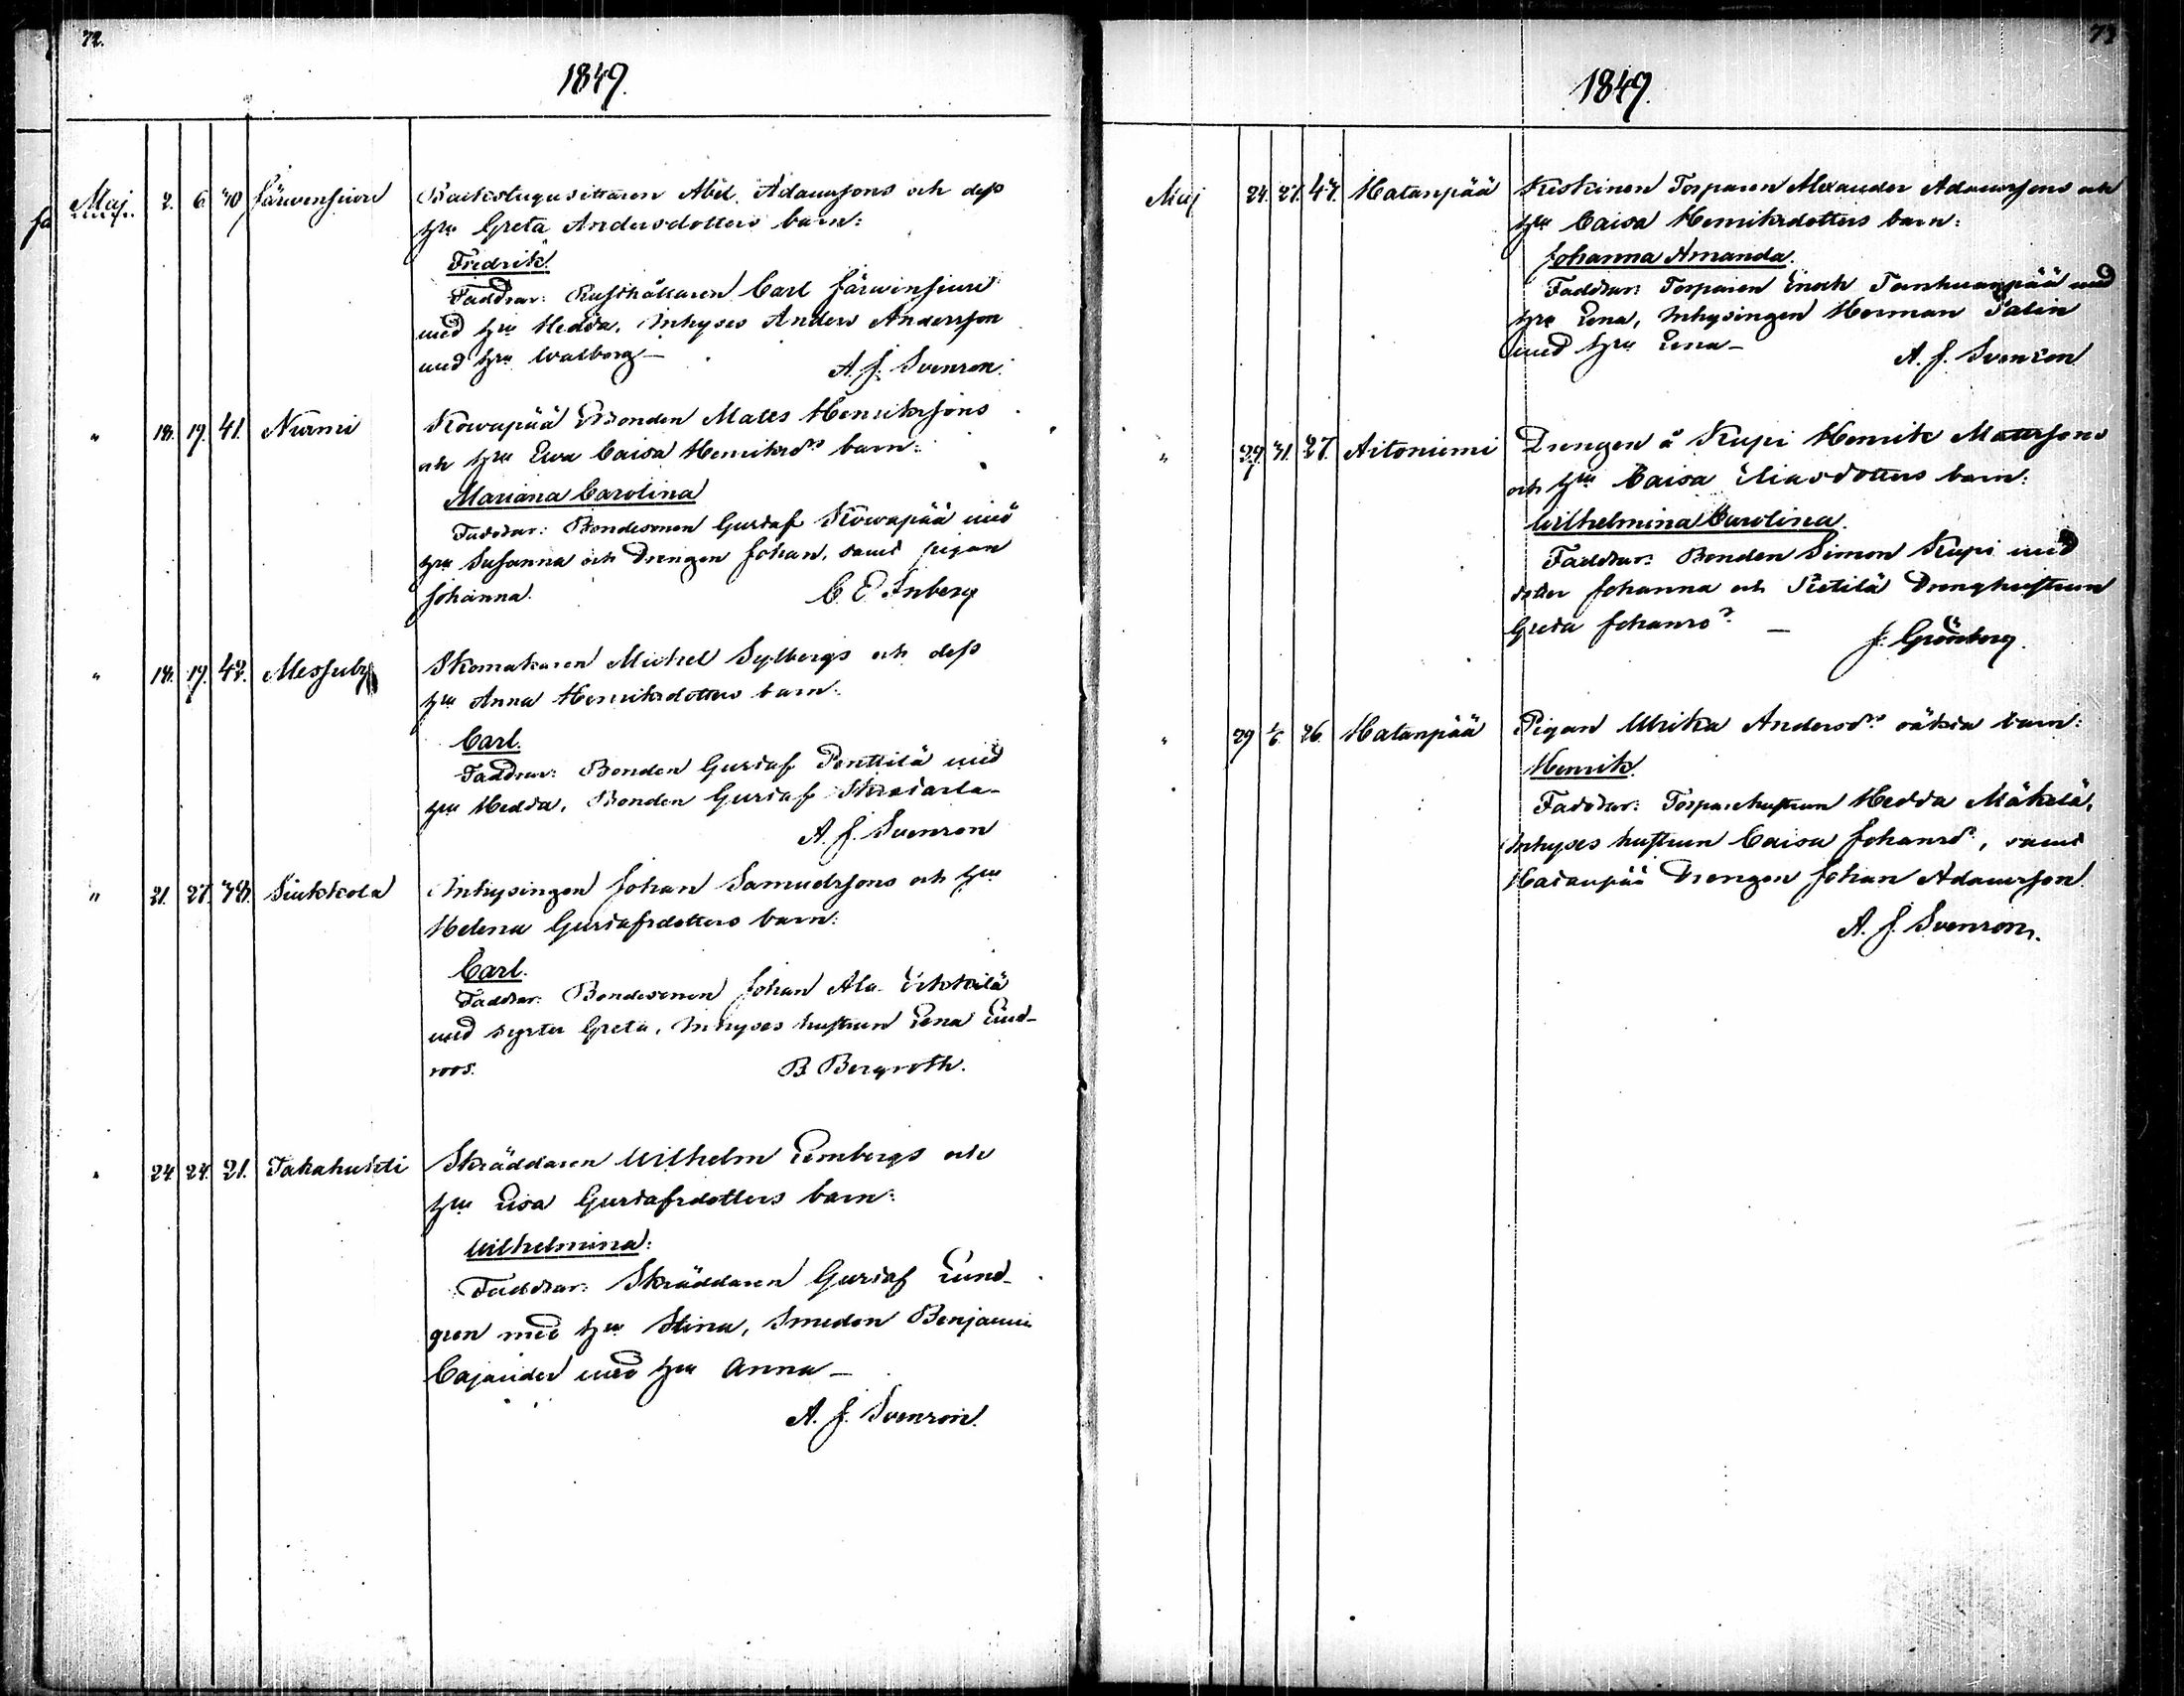 72.
1849.
Maj 2. 6 40 Järvensivu Backstugusittaren Abel Adamssons och dess
hru Greta Andersdotters barn:
Fredrik.
Faddrar: Rusthållaren Carl Järvensivu
med hru Hedda, Inhyses Anders Andersson
med hru Walborg —
A. J. Svenson.
" 18. 19. 41. Nurmi Kowapää Bonden Matts Henrikssons
och hru Ewa Caisa Henriksdrs barn:
Mariana Carolina
Faddrar: Bondesonen Gustaf Kowapää med
hru Susanna och Drengen Johan, samt pigan
Johanna. C. E. Inberg
" 18. 19. 42. Messuby Skomakaren Michel Sylbergs och dess
hru Anna Henriksdotters barn:
Carl.
Faddrar: Bonden Gustaf Penttilä med
hru Hedda, Bonden Gustaf
A. J. Svenson
" 21. 27. 38. Siukkola Inhysingen Johan Samuelssons och hru
Helena Gustafsdotters barn:
Carl.
Faddrar: Bondesonen Johan Ala Erkkilä
med syster Greta, Inhyses hustrun Lena Lind-
roos. B. Bergroth.
" 24 24. 21. Takahuhti Skräddaren Wilhelm Lembergs och
hru Lisa Gustafsdotters barn:
Wilhelmina:
Faddrar: Skräddaren Gustaf Lund-
gren med hru Stina, Smeden Benjamin
Cajander med hru Anna —
A. J. Svenson.
73
1849.
Maj 24. 27. 47. Hatanpää Kiskinen Torparen Alexander Adamssons och
hru Caisa Henriksdotters barn:
Johanna Amanda.
Faddrar: Torparen Enoch Tanhuanpää med
hru Lena, Inhysingen Herman Salin
med hru Lena — A. J. Svenson
" 29. 31. 27. Aitoniemi Drengen å Kupi Henrik Mattssons
och hru Caisa Eliasdotters barn:
Wilhelmina Carolina.
Faddrar: Bonden Simon Kupi med
dotter Johanna och Pietilä Drenghustrun
Greta Johansdr — J. Grönberg.
" 29 1/6. 26. Hatanpää Pigan Ulrika Andersdrs oäkta barn:
Henrik.
Faddrar: Torparehustrun Hedda Mäkelä,
Inhyses hustrun Caisa Johansdr, samt
Hatanpää Drengen Johan Adamsson.
A. J. Svenson.